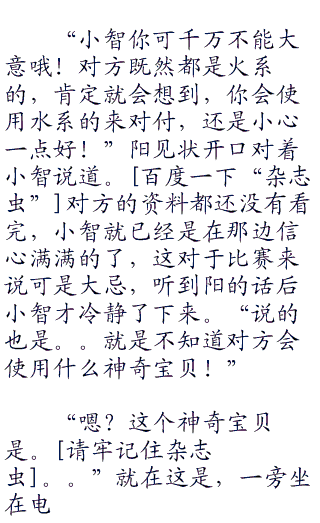 “小智你可千万不能大
意哦！对方既然都是火系
的，肯定就会想到，你会使
用水系的来对付，还是小心
一点好！”阳见状开口对着
小智说道。[百度一下“杂志
虫”]对方的资料都还没有看
完，小智就已经是在那边信
心满满的了，这对于比赛来
说可是大忌，听到阳的话后
小智才冷静了下来。“说的
也是。。就是不知道对方会
使用什么神奇宝贝！”
“嗯？这个神奇宝贝
是。[请牢记住杂志
虫]。。”就在这是，一旁坐
在电